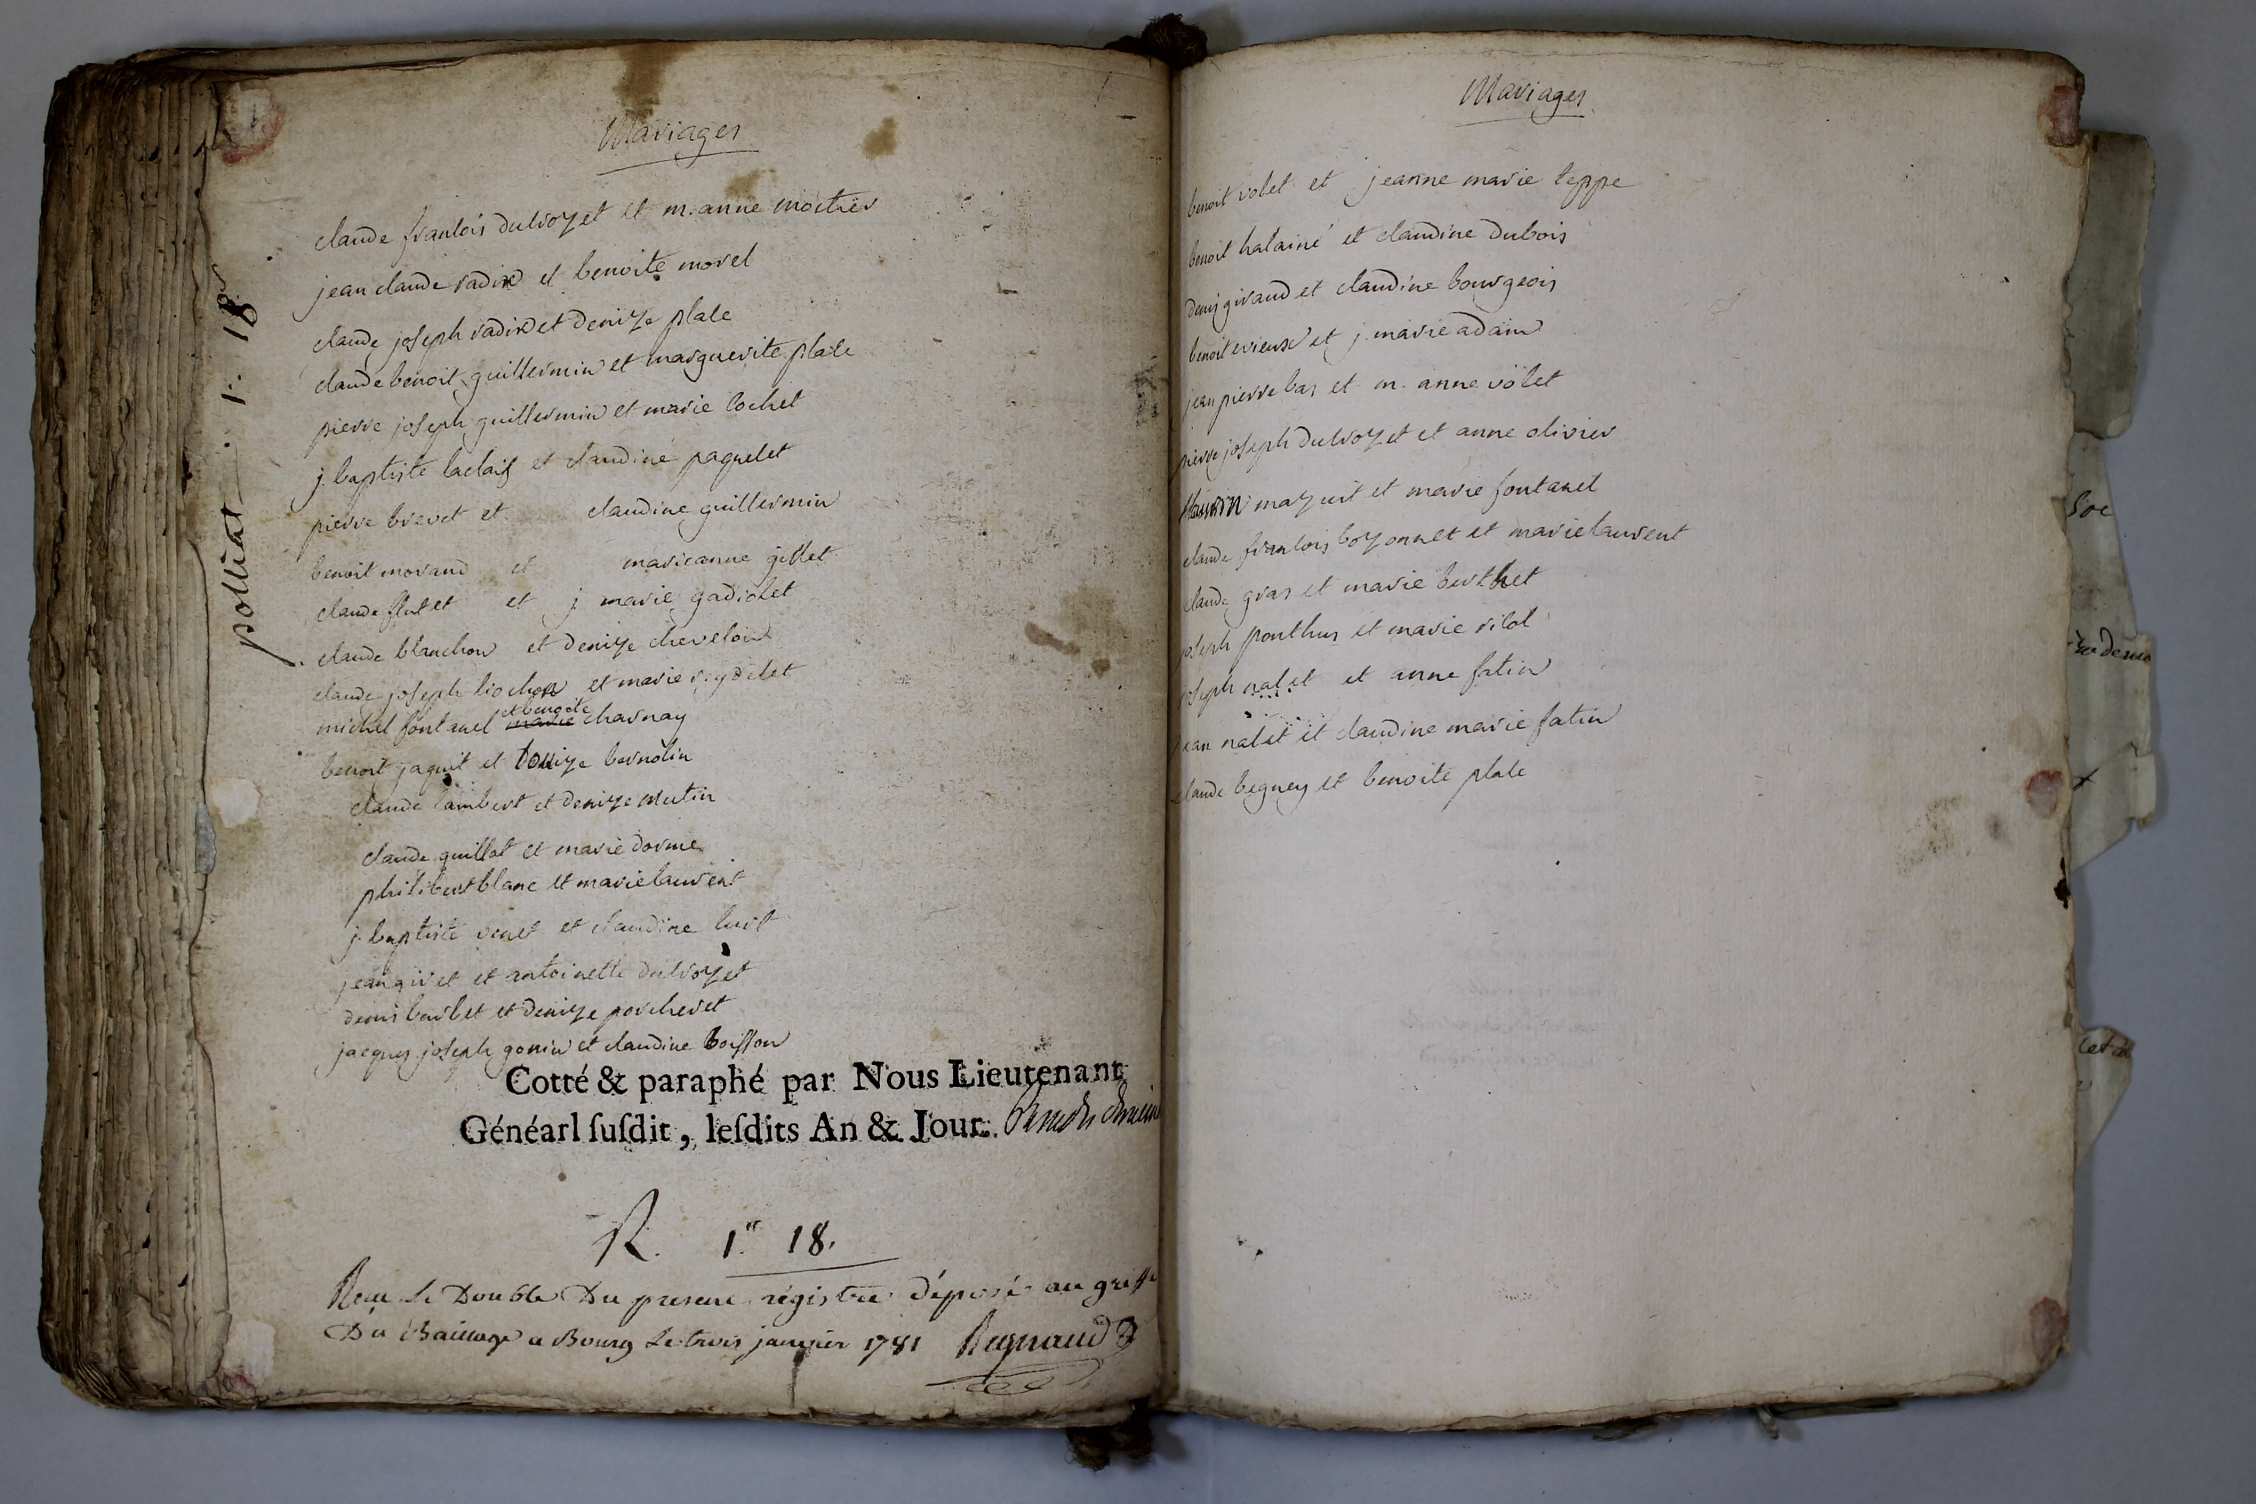 polliat 1.er 18
Mariages
claude francois dutroyet et m. anne mortier
jean claude radix et benoite morel
claude joseph radix et denize place
claude benoit guillermin et marguerite place
pierre joseph guillermin et marie cochet
j. baptiste laclais et claudine paquelet
pierre brevet et claudine guillermin
benoit morand et marieanne gillet
claude flutet et j marie gadiolet
claude blanchon et denize chevelon
claude joseph liochon et marie reydelet
michel fontanel et benoite marie charnay
benoit jaquit et denize bernolin
claude lambert et denize mutin
claude guillot et marie dorme
philibert blanc et marie laurent
j. baptiste venet et claudine
jean givet et antoinette dutroyet
denis barbet et denize porcheret
jacques joseph gonin et claudine boisson
Cotté & paraphé par Nous Lieutenant
Généarl susdit, lesdits An & Jour.
R. 1.er 18.
Recu le Double Du present régistre déposé au greffe
Du Bailliage a Bourg le trois janvier 1781 Regnaud
Mariages
benoit volet et jeanne marie teppe
benoit halainé et claudine dubois
denis giraud et claudine bourgeois
benoit vieux et j. marie adam
jean pierre bas et m. anne volet
pierre joseph dutroyet et anne olivier
mazuit et marie fontanel
claude francois bozonnet et marie laurent
claude gras et marie berthet
joseph ponthus et marie
joseph nalet et anne fatin
jean nalet et claudine marie fatin
claude beguey et benoite place